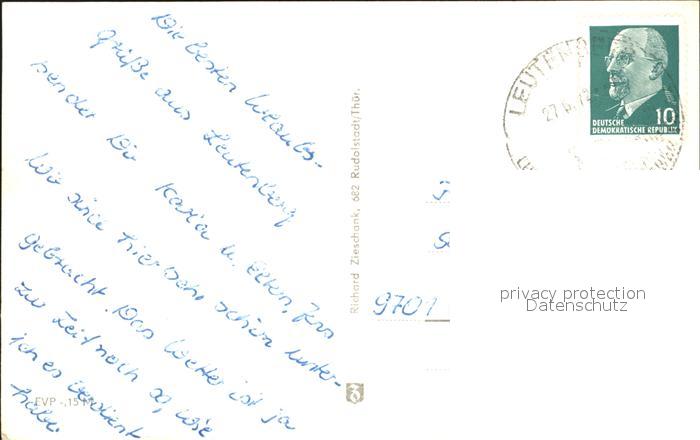 Die besten Urlaubs-
grüße aus Leutenberg
sendet Dir Karla u. Eltern,
Wir sind hier sehr schön unter-
gebracht. Das Wetter ist ja
zur Zeit noch so, wie
ich es verdient
habe.
EVP -,15 M
Richard Zieschank, 682 Rudolstadt/Thür.
LEUTENBE
27.6.72
10
DEUTSCHE
DEMOKRATISCHE REPUBLIK
9701
privacy protection
Datenschutz